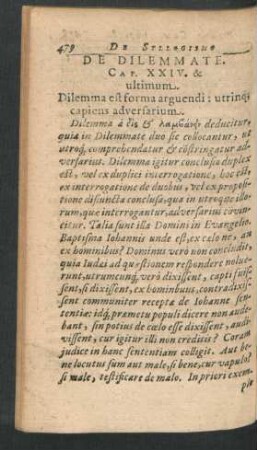 479 DE SYLLOGISMO
DE DILEMMATE.
CAP. XXIV. &
ultimum.
Dilemma est forma arguendi: utrinq;
capiens adversarium.
Dilemma à δὶς & λαμβάνω deducitur,
quia in Dilemmate duo sic collocantur, ut
utroq; comprehendatur & cõstringatur ad-
versarius. Dilemma igitur conclusio duplex
est, vel ex duplici interrogatione, hoc est,
ex interrogatione de duobus, vel ex proposi-
tione disiuncta conclusa, qua in utroque illo-
rum, que interrogantur, adversarius convin-
citur. Talia sunt illa Domini in Evangelio.
Baptisma Iohannis unde est, ex cælo ne, an
ex hominibus? Dominus vero non concludit,
quia Iudei ad quæstionem respondere nolue-
runt, utrumcunq; verò dixissent, capti fuis-
sent, si dixissent, ex hominbuns, contradixis-
sent communiter receptæ de Iohanne sen-
tentiæ: idq; præmetu populi dicere non aude-
bant, sin potius de cælo esse dixissent, audi-
vissent, cur igitur illi non credidis? Coram
judice in hanc sententiam colligit. Aut be-
ne locutus sum aut male, si bene, cur vapulo?
si male, testificare de malo. In priori exem-
plo